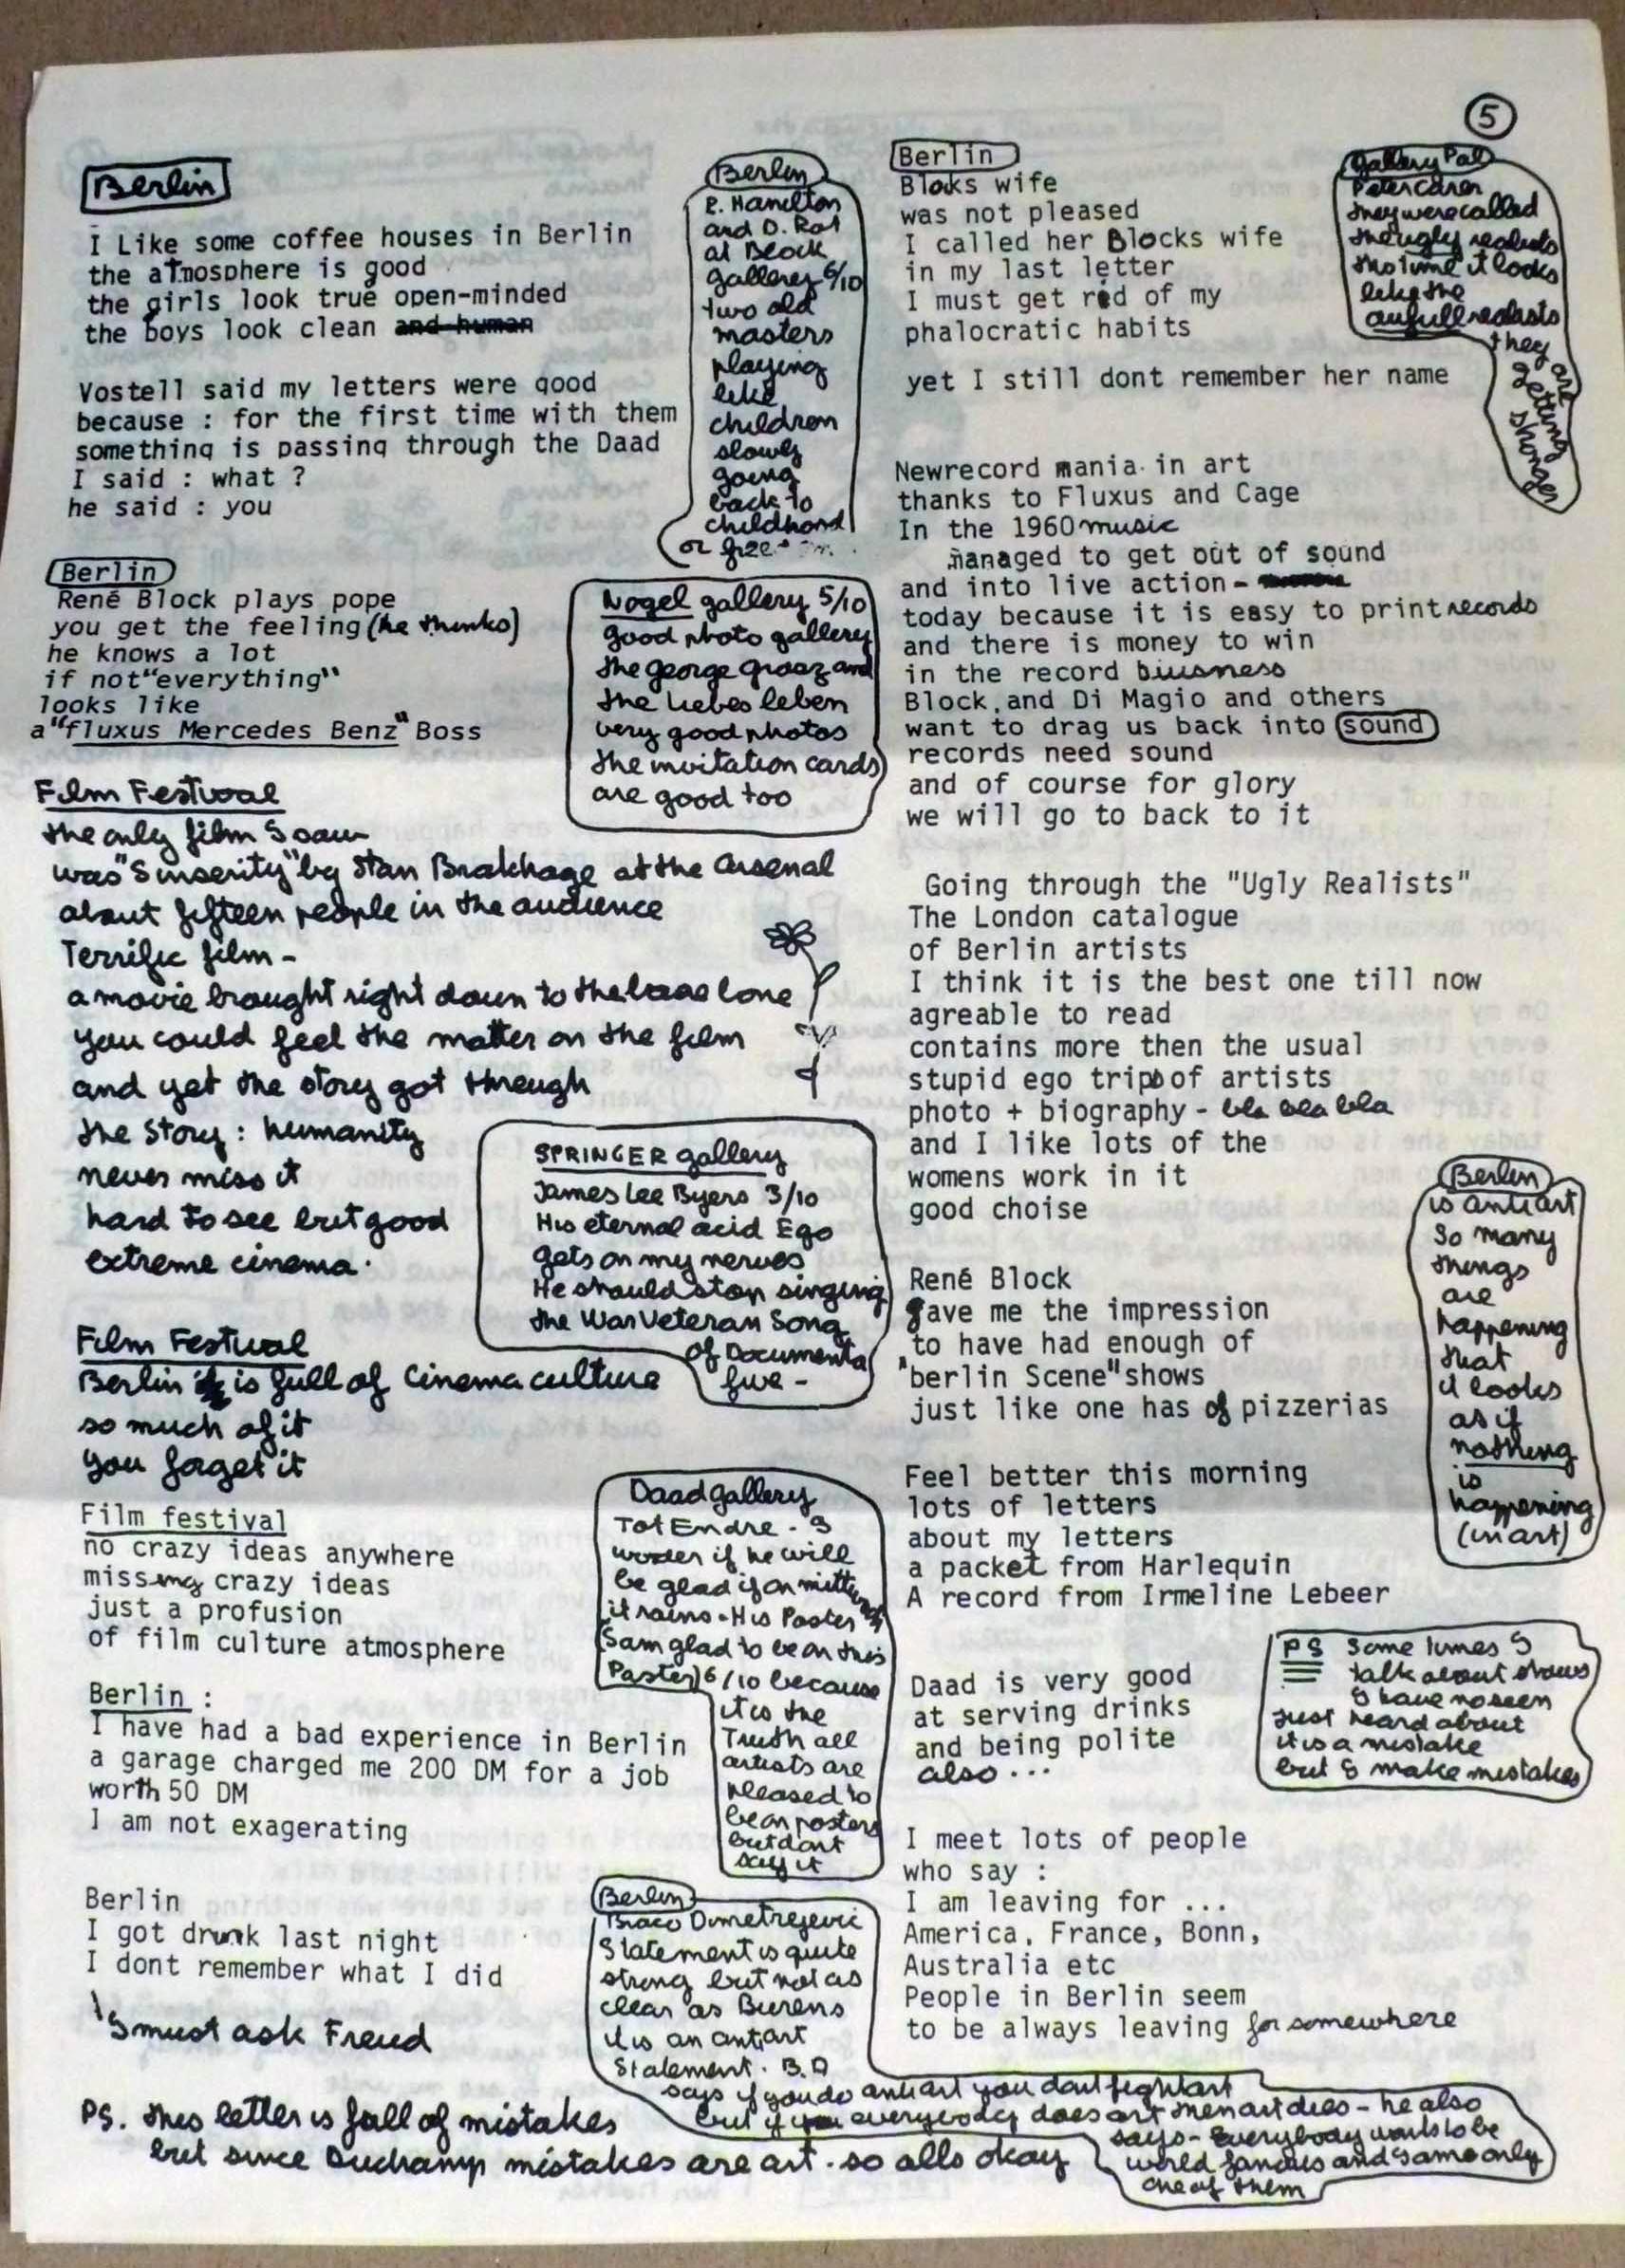 5
Berlin
I Like some coffee houses in Berlin
the atmosphere is good
the girls look true open-minded
the boys look clean and human
Vostell said my letters were good
because : for the first time with them
something is passing through the Daad
I said : what ?
he said : you
Berlin
René Block plays pope
you get the feeling (he thinks)
he knows a lot
if not "everything"
looks like
a "fluxus Mercedes Benz" Boss
Film Festival
the only film I saw
was "Sinserity" by Stan Brakhage at the Arsenal
about fifteen people in the audience
Terrific film -
a movie brought right down to the bone
you could feel the matter on the film
and yet the story got through
the Story : humanity
never miss it
hard to see but good
extreme cinema.
Film Festival
Berlin is full of Cinema culture
so much of it
you forget it
Film festival
no crazy ideas anywhere
missing crazy ideas
just a profusion
of film culture atmosphere
Berlin :
I have had a bad experience in Berlin
a garage charged me 200 DM for a job
worth 50 DM
I am not exagerating
Berlin
I got drunk last night
I dont remember what I did
I must ask Freud
PS. this letter is full of mistakes
but since Duchamp mistakes are art . so alls okay
Berlin
R. Hamilton
and D. Rot
at Block
gallery 6/10
two old
masters
playing
like
children
slowly
going
back to
childhood
or
Nagel gallery 5/10
good photo gallery
the george grosz and
the liebes leben
very good photos
the invitation cards
are good too
SPRINGER gallery
James Lee Byers 3/10
His eternal acid Ego
gets on my nerves
He should stop singing
the War Veteran Song
of Documenta
five -
Daad gallery
Tot Endre . I
wonder if he will
be glad if on
it rains . His Poster
I am glad to be on this
Poster) 6/10 because
it is the
Truth all
artists are
pleased to
be on posters
but dont
say it
Berlin
Braco Dimetrejevic
Statement is quite
strong but not as
clear as Burens
it is an antiart
Statement . B.D
says if you do antiart you dont fight art
but if everybody does art then art dies - he also
says - Everybody wants to be
world famous and I am only
one of them
Berlin
Bloks wife
was not pleased
I called her Blocks wife
in my last letter
I must get rid of my
phalocratic habits
yet I still dont remember her name
Newrecord mania in art
thanks to Fluxus and Cage
In the 1960 music
managed to get out of sound
and into live action -
today because it is easy to print records
and there is money to win
in the record biusness
Block, and Di Magio and others
want to drag us back into sound
records need sound
and of course for glory
we will go to back to it
Going through the "Ugly Realists"
The London catalogue
of Berlin artists
I think it is the best one till now
agreable to read
contains more then the usual
stupid ego trips of artists
photo + biography - bla bla bla
and I like lots of the
womens work in it
good choise
René Block
gave me the impression
to have had enough of
"berlin Scene" shows
just like one has of pizzerias
Feel better this morning
lots of letters
about my letters
a packet from Harlequin
A record from Irmeline Lebeer
Daad is very good
at serving drinks
and being polite
also ...
I meet lots of people
who say :
I am leaving for ...
America, France, Bonn,
Australia etc
People in Berlin seem
to be always leaving for somewhere
gallery Pol
Peter
they were called
the ugly realists
this time it looks
like the
awfull realists
they are
getting
stronger
Berlin
is antiart
So many
things
are
happening
that
it looks
as if
nothing
is
happening
(in art)
PS Some times I
talk about shows
I have no seen
just heard about
it is a mistake
but I make mistakes